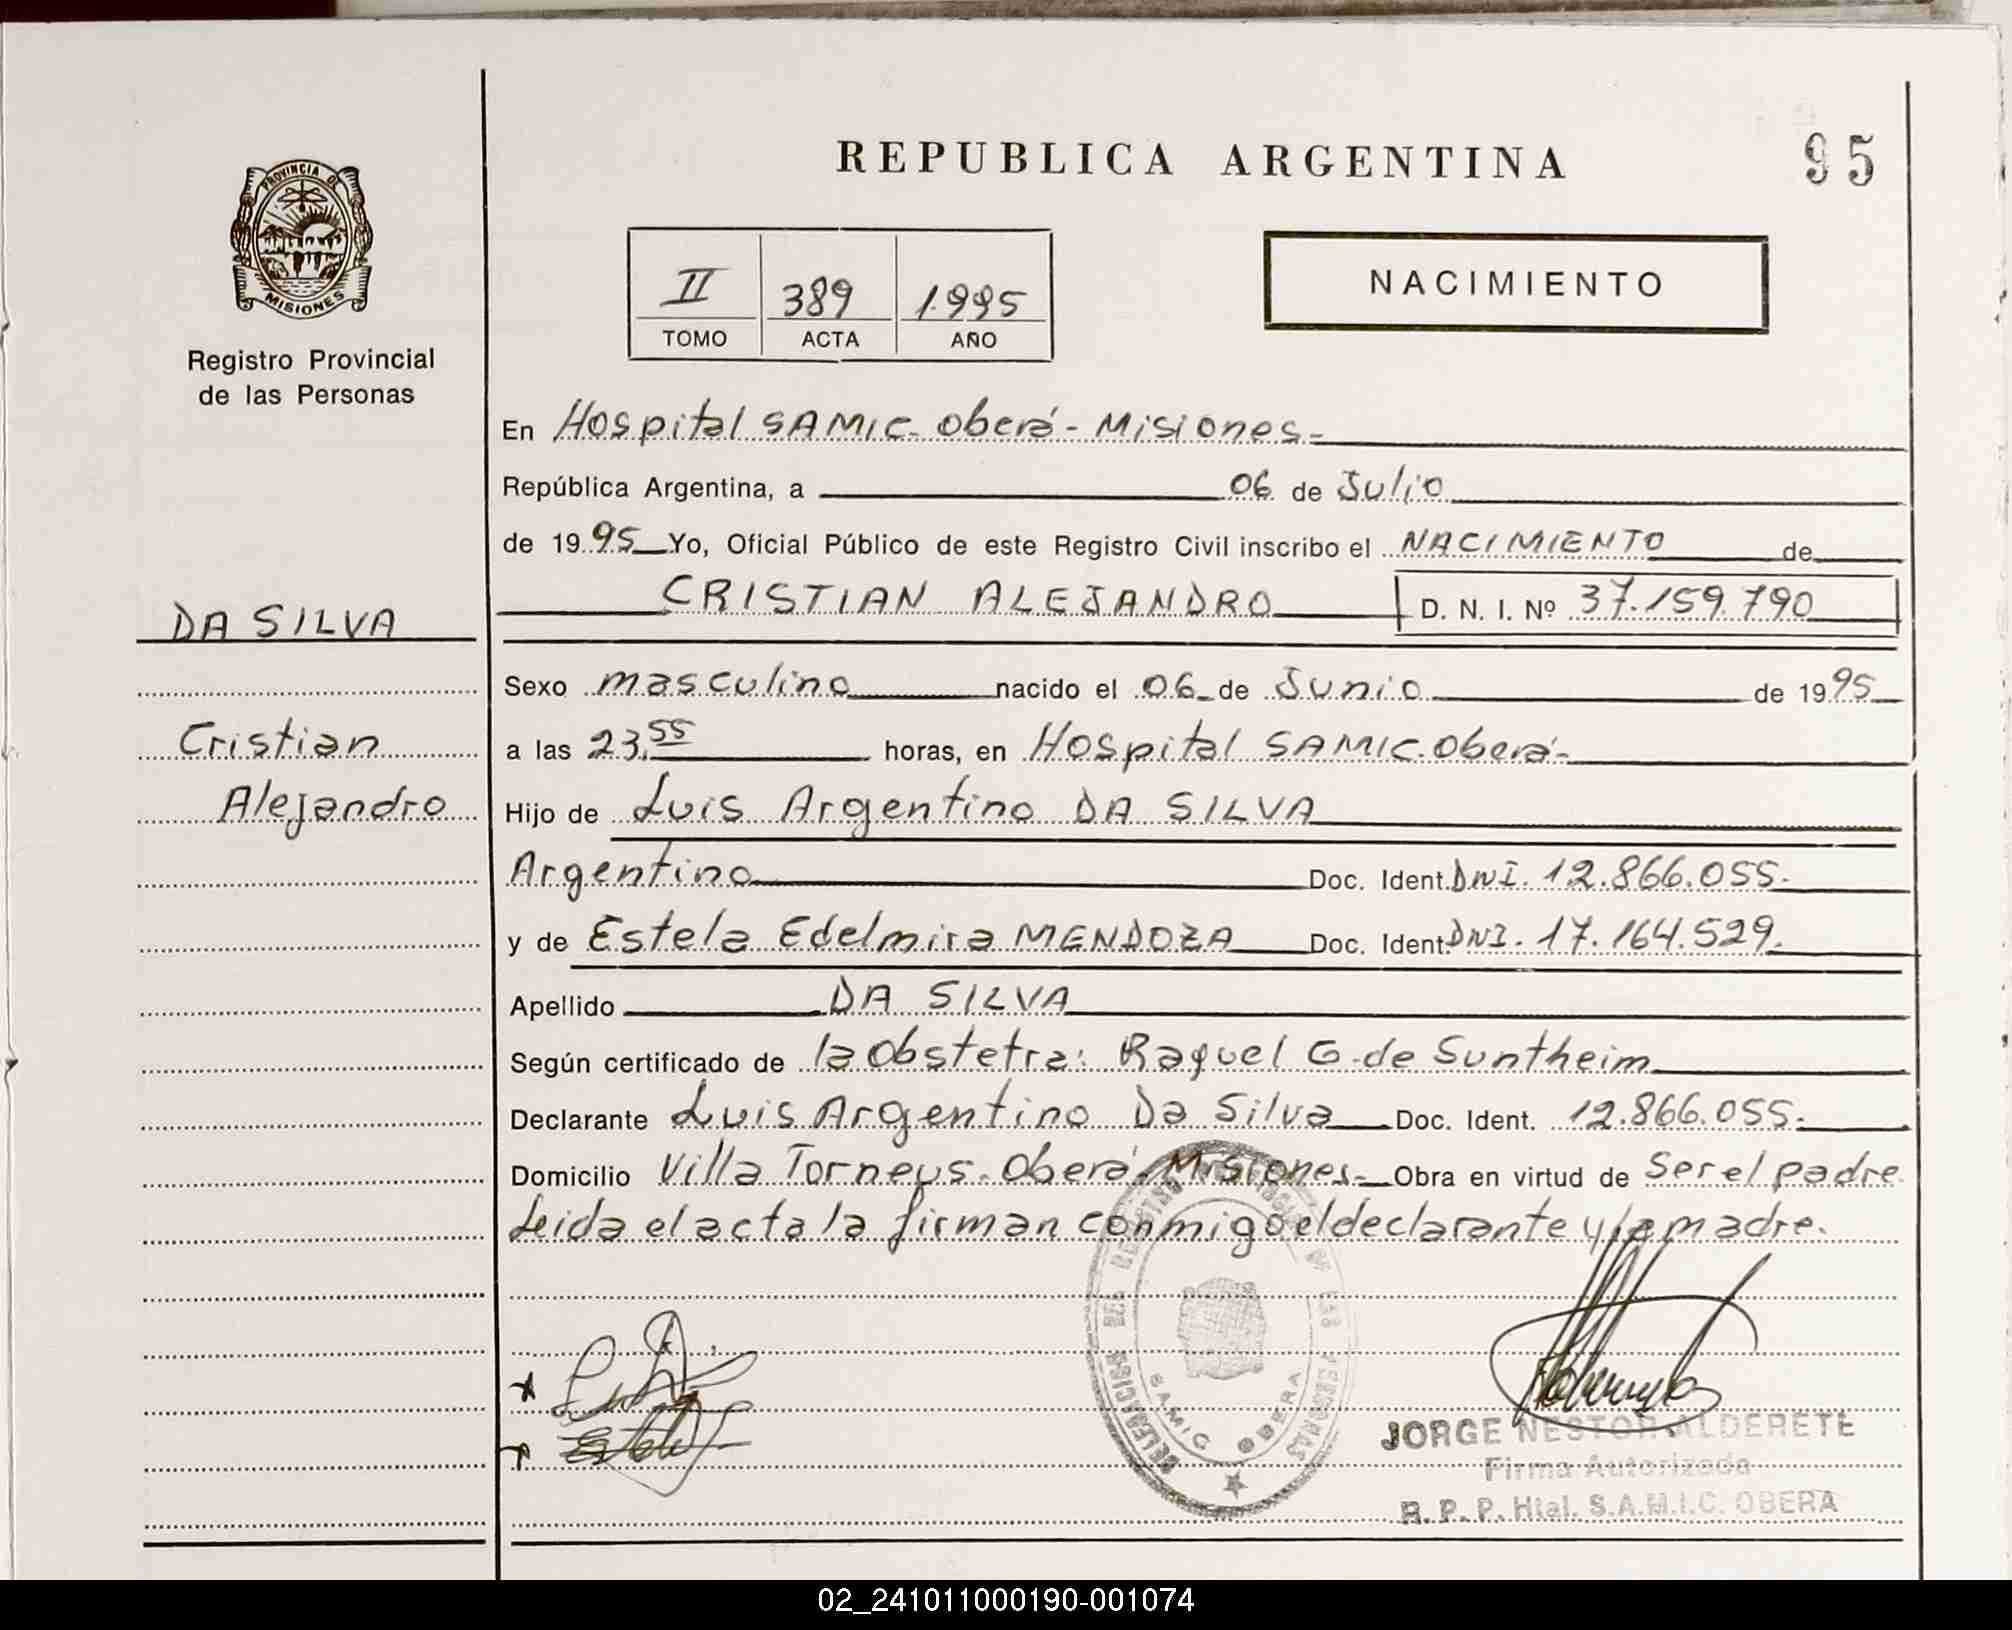 REPUBLICA ARGENTINA
95
PROVINCIA DE MISIONES
Registro Provincial
de las Personas
II 389 1.995
TOMO ACTA AÑO
NACIMIENTO
DA SILVA
Cristian
Alejandro
En Hospital SAMIC. Oberá - Misiones.-
República Argentina, a 06 de Julio
de 1995 Yo, Oficial Público de este Registro Civil inscribo el NACIMIENTO de
CRISTIAN ALEJANDRO D. N. I. Nº 37.159.790
Sexo masculino nacido el 06 de Junio de 1995
a las 23,55 horas, en Hospital SAMIC. Oberá-
Hijo de Luis Argentino DA SILVA
Argentino Doc. Ident. DNI. 12.866.055.
y de Estela Edelmira MENDOZA Doc. Ident. DNI. 17.164.529.
Apellido DA SILVA
Según certificado de la Obstetra: Raquel G. de Suntheim
Declarante Luis Argentino Da Silva Doc. Ident. 12.866.055.
Domicilio Villa Torneus. Oberá - Misiones.- Obra en virtud de Ser el padre.
Leida el acta la firman conmigo el declarante y la madre.
SAMIC OBERA
JORGE NESTOR ALDERETE
Firma Autorizada
R. P. P. Htal. S.A.M.I.C. OBERA
02_241011000190-001074